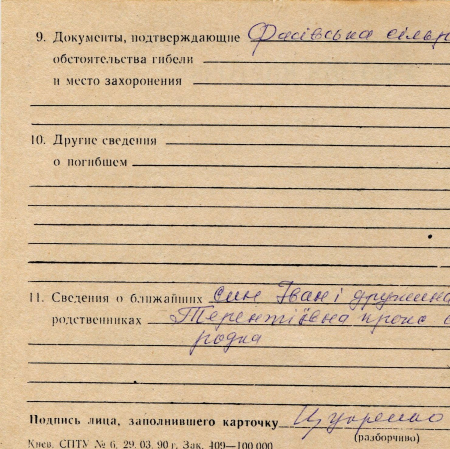 9. Документы, подтверждающие Фасівська сільр
обстоятельства гибели
и место захоронения
10. Другие сведения
о погибшем
11. Сведения о ближайших син Іван і дружина
родственниках Терентіївна прожс
родна
Подпись лица, заполнившего карточку
(разборчиво)
Киев. СПТУ № 6. 29. 03. 90 г. Зак. 409—100 000